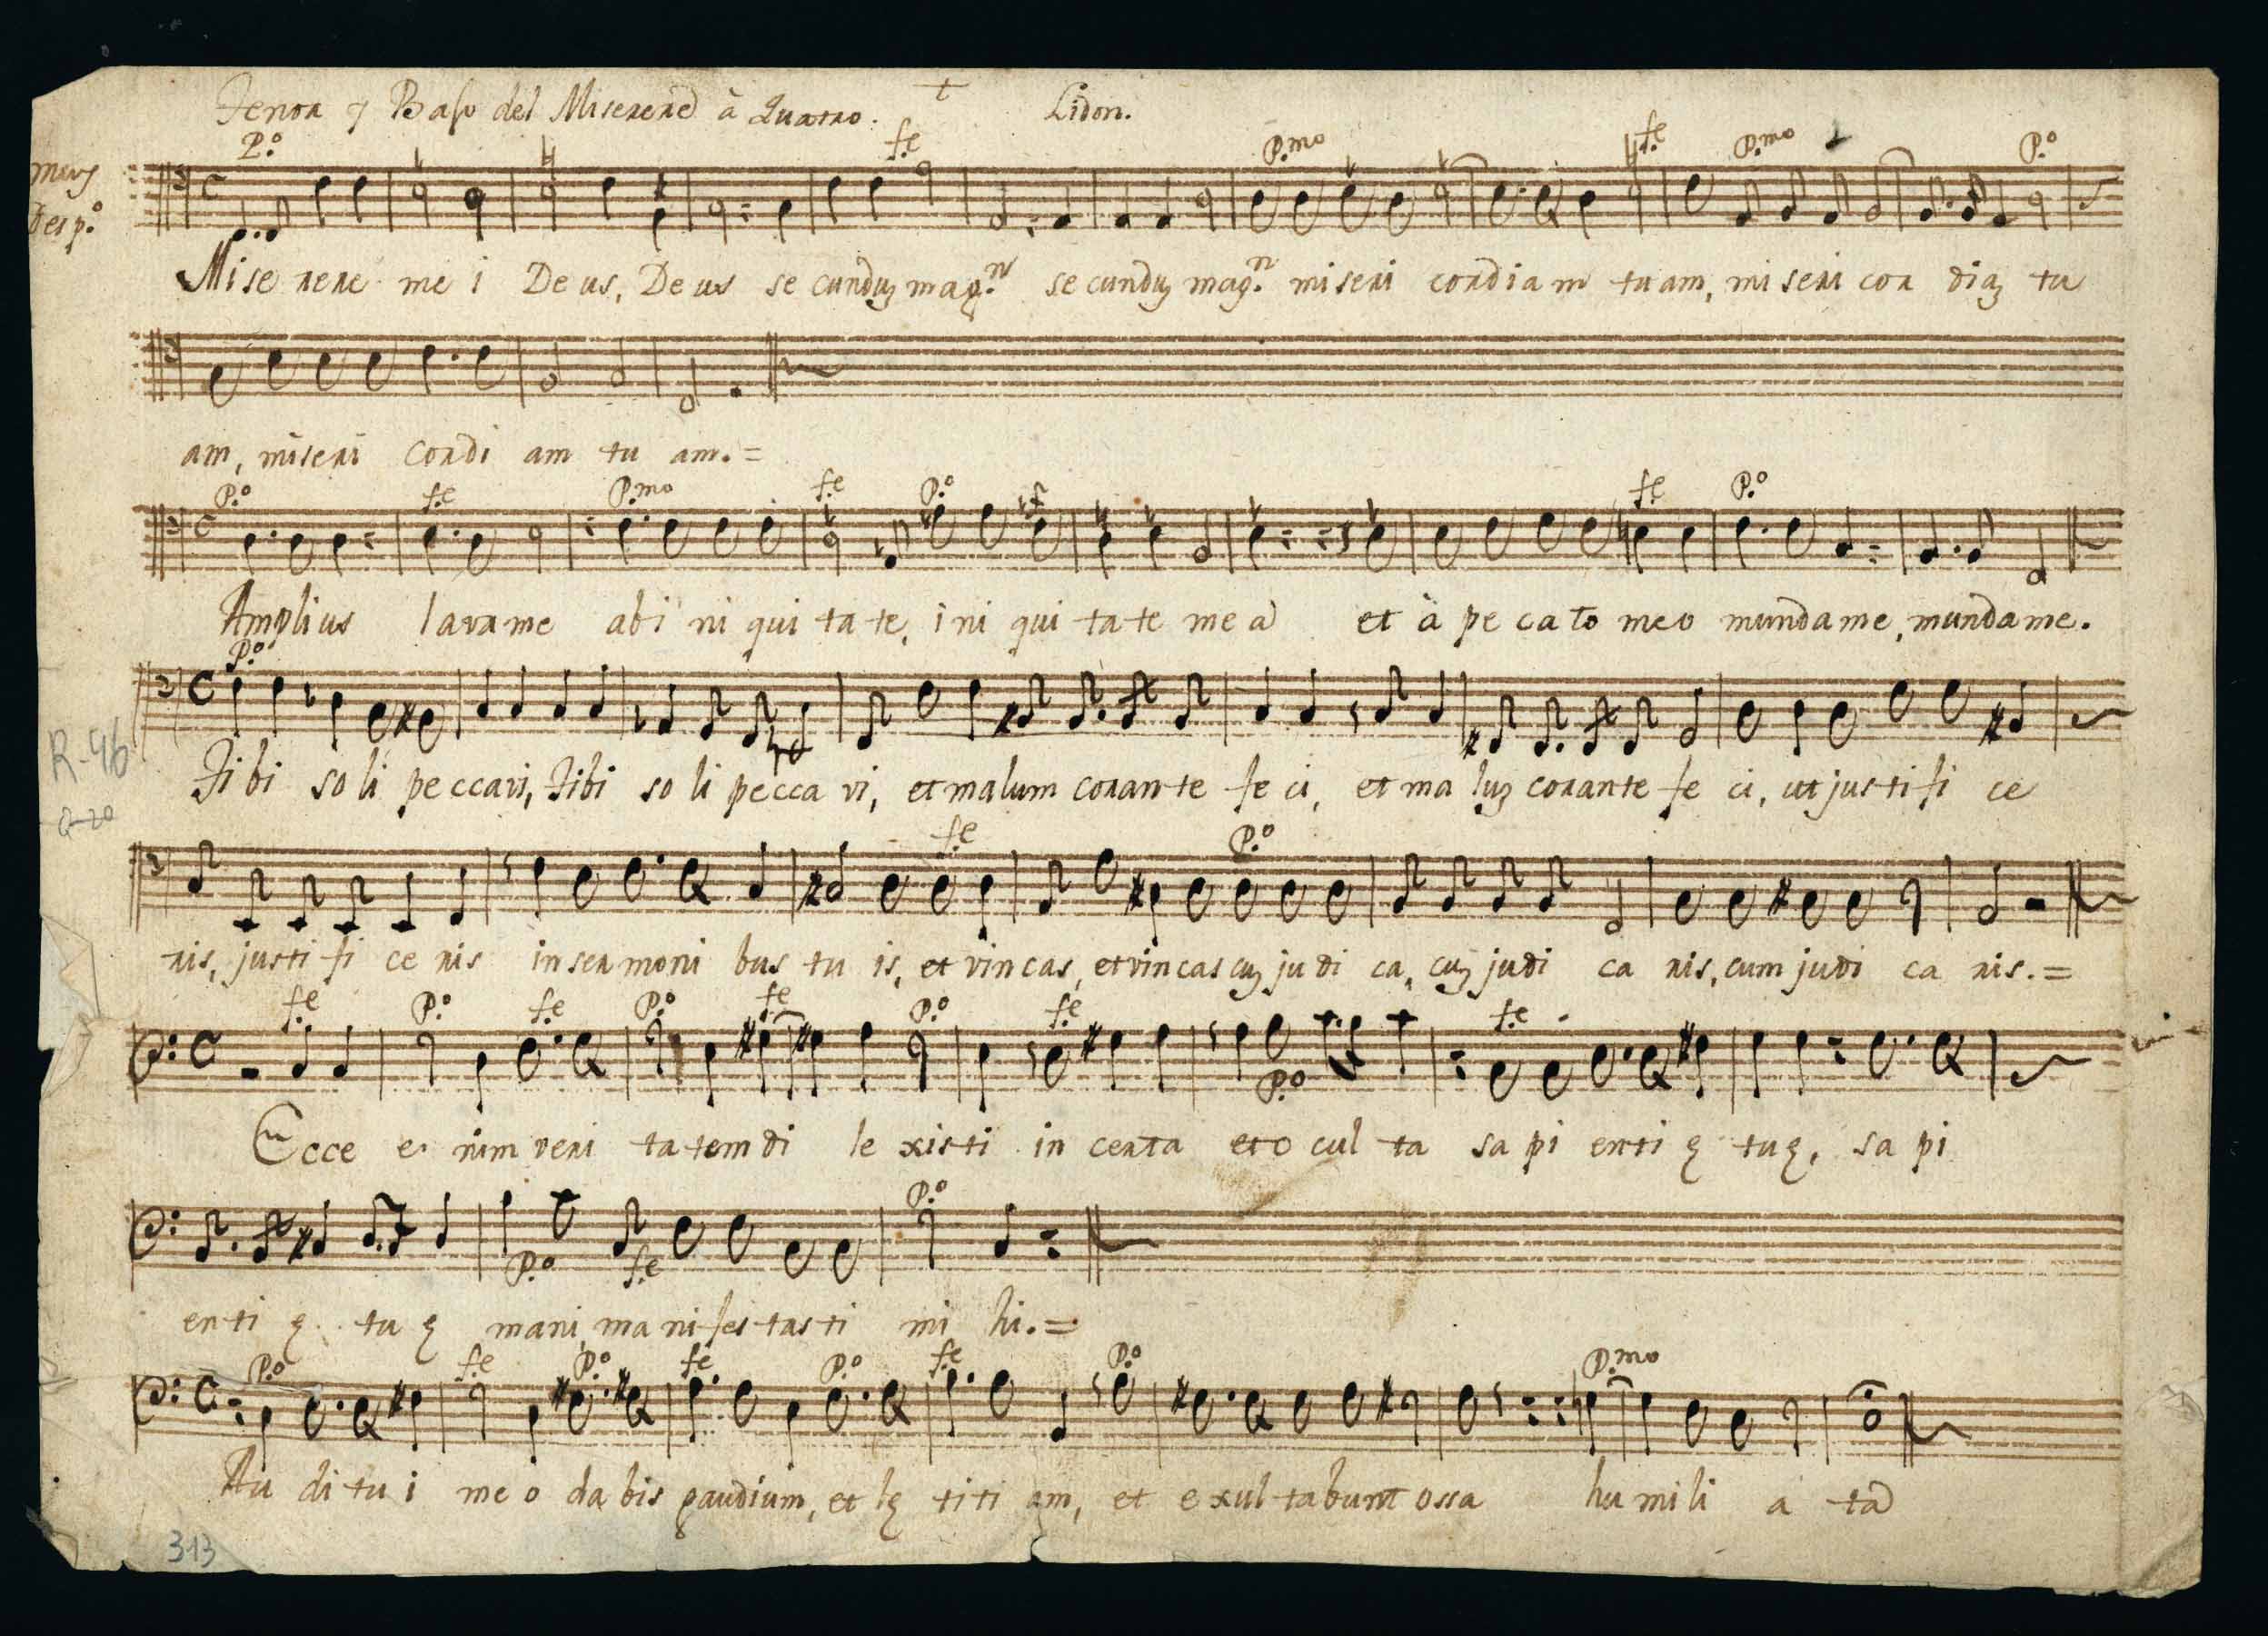 Tenor y Baso del Miserere à Quatro. Lidon.
P.o fe P.mo fe P.mo P.o
Desp.o
Mise rere me i De us, De us se cunduz mag.n se cunduz mag.n miseri cordiam tuam, mi seri cor diaz tu
am, miseri cordi am tu am.=
P.o fe P.mo fe P.o fe P.o
Amplius lavame abi ni qui ta te, i ni qui ta te me a et à pe cato meo mundame, mundame.
P.o
Tibi so li peccavi, Tibi so li pecca vi, et malum corante fe ci, et ma luz corante fe ci, ut justi fi ce
R-96
fe P.o
ris, justi fi ce ris in ser moni bus tu is, et vincas, et vincas cuz ju di ca, cuz judi ca ris, cum judi ca ris.=
fe P.o fe P.o fe P.o fe P.o fe
Ecce e nim veri ta tem di le xisti in certa et o cul ta sa pi enti ę tuę, sa pi
P.o P.o fe
enti ę tu ę mani, ma nifes tas ti mi hi.=
P.o fe P.o fe P.o fe P.o P.mo
Au di tu i me o da bis gaudium, et lę titi am, et exul tabunt ossa humili a ta
313